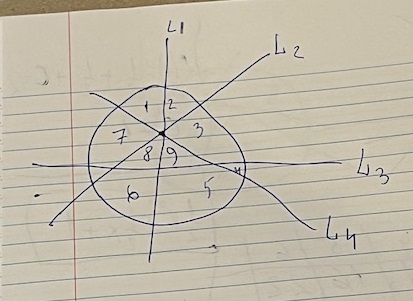 L1
L2
1 2
7 3
8 9
L3
4
6 5
L4